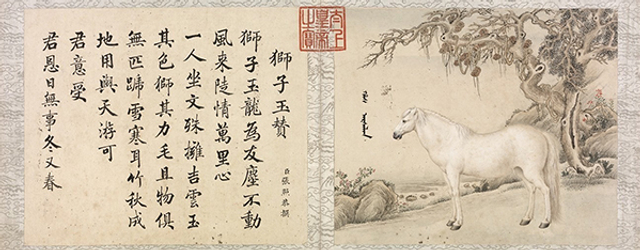 太上皇帝之寶
獅子玉贊
臣張照恭撰
獅子玉龍為友塵不動
風來陡情萬里心
一人坐文殊擁吉雲玉
其色獅其力毛且物俱
無匹蹄雪寒耳竹秋成
地用與天游可
君意受
君恩日無事冬又春